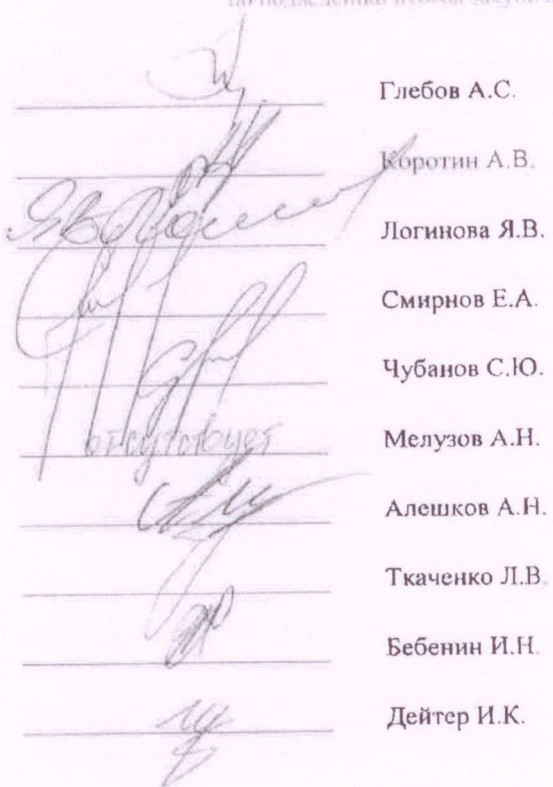 Глебов А.С.
Коротин А.В.
Логинова Я.В.
Смирнов Е.А.
Чубанов С.Ю.
отсутствует Мелузов А.Н.
Алешков А.Н.
Ткаченко Л.В.
Бебенин И.Н.
Дейтер И.К.